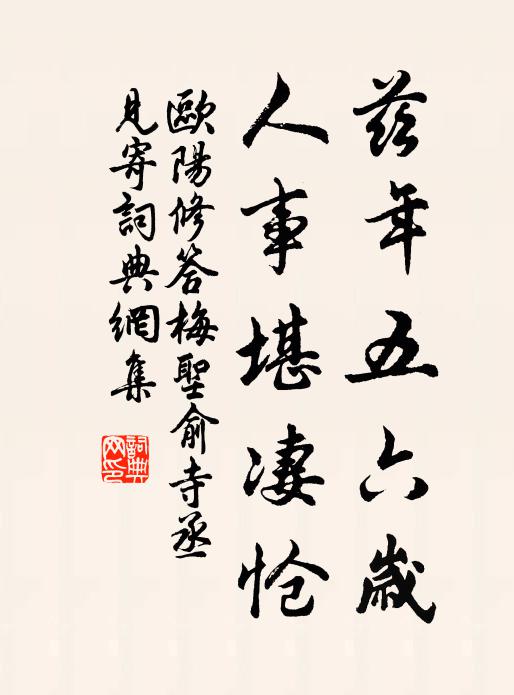 茲年五六歲
人事堪凄愴
歐陽修答梅聖俞寺丞
見寄詞典網集
詞典网印